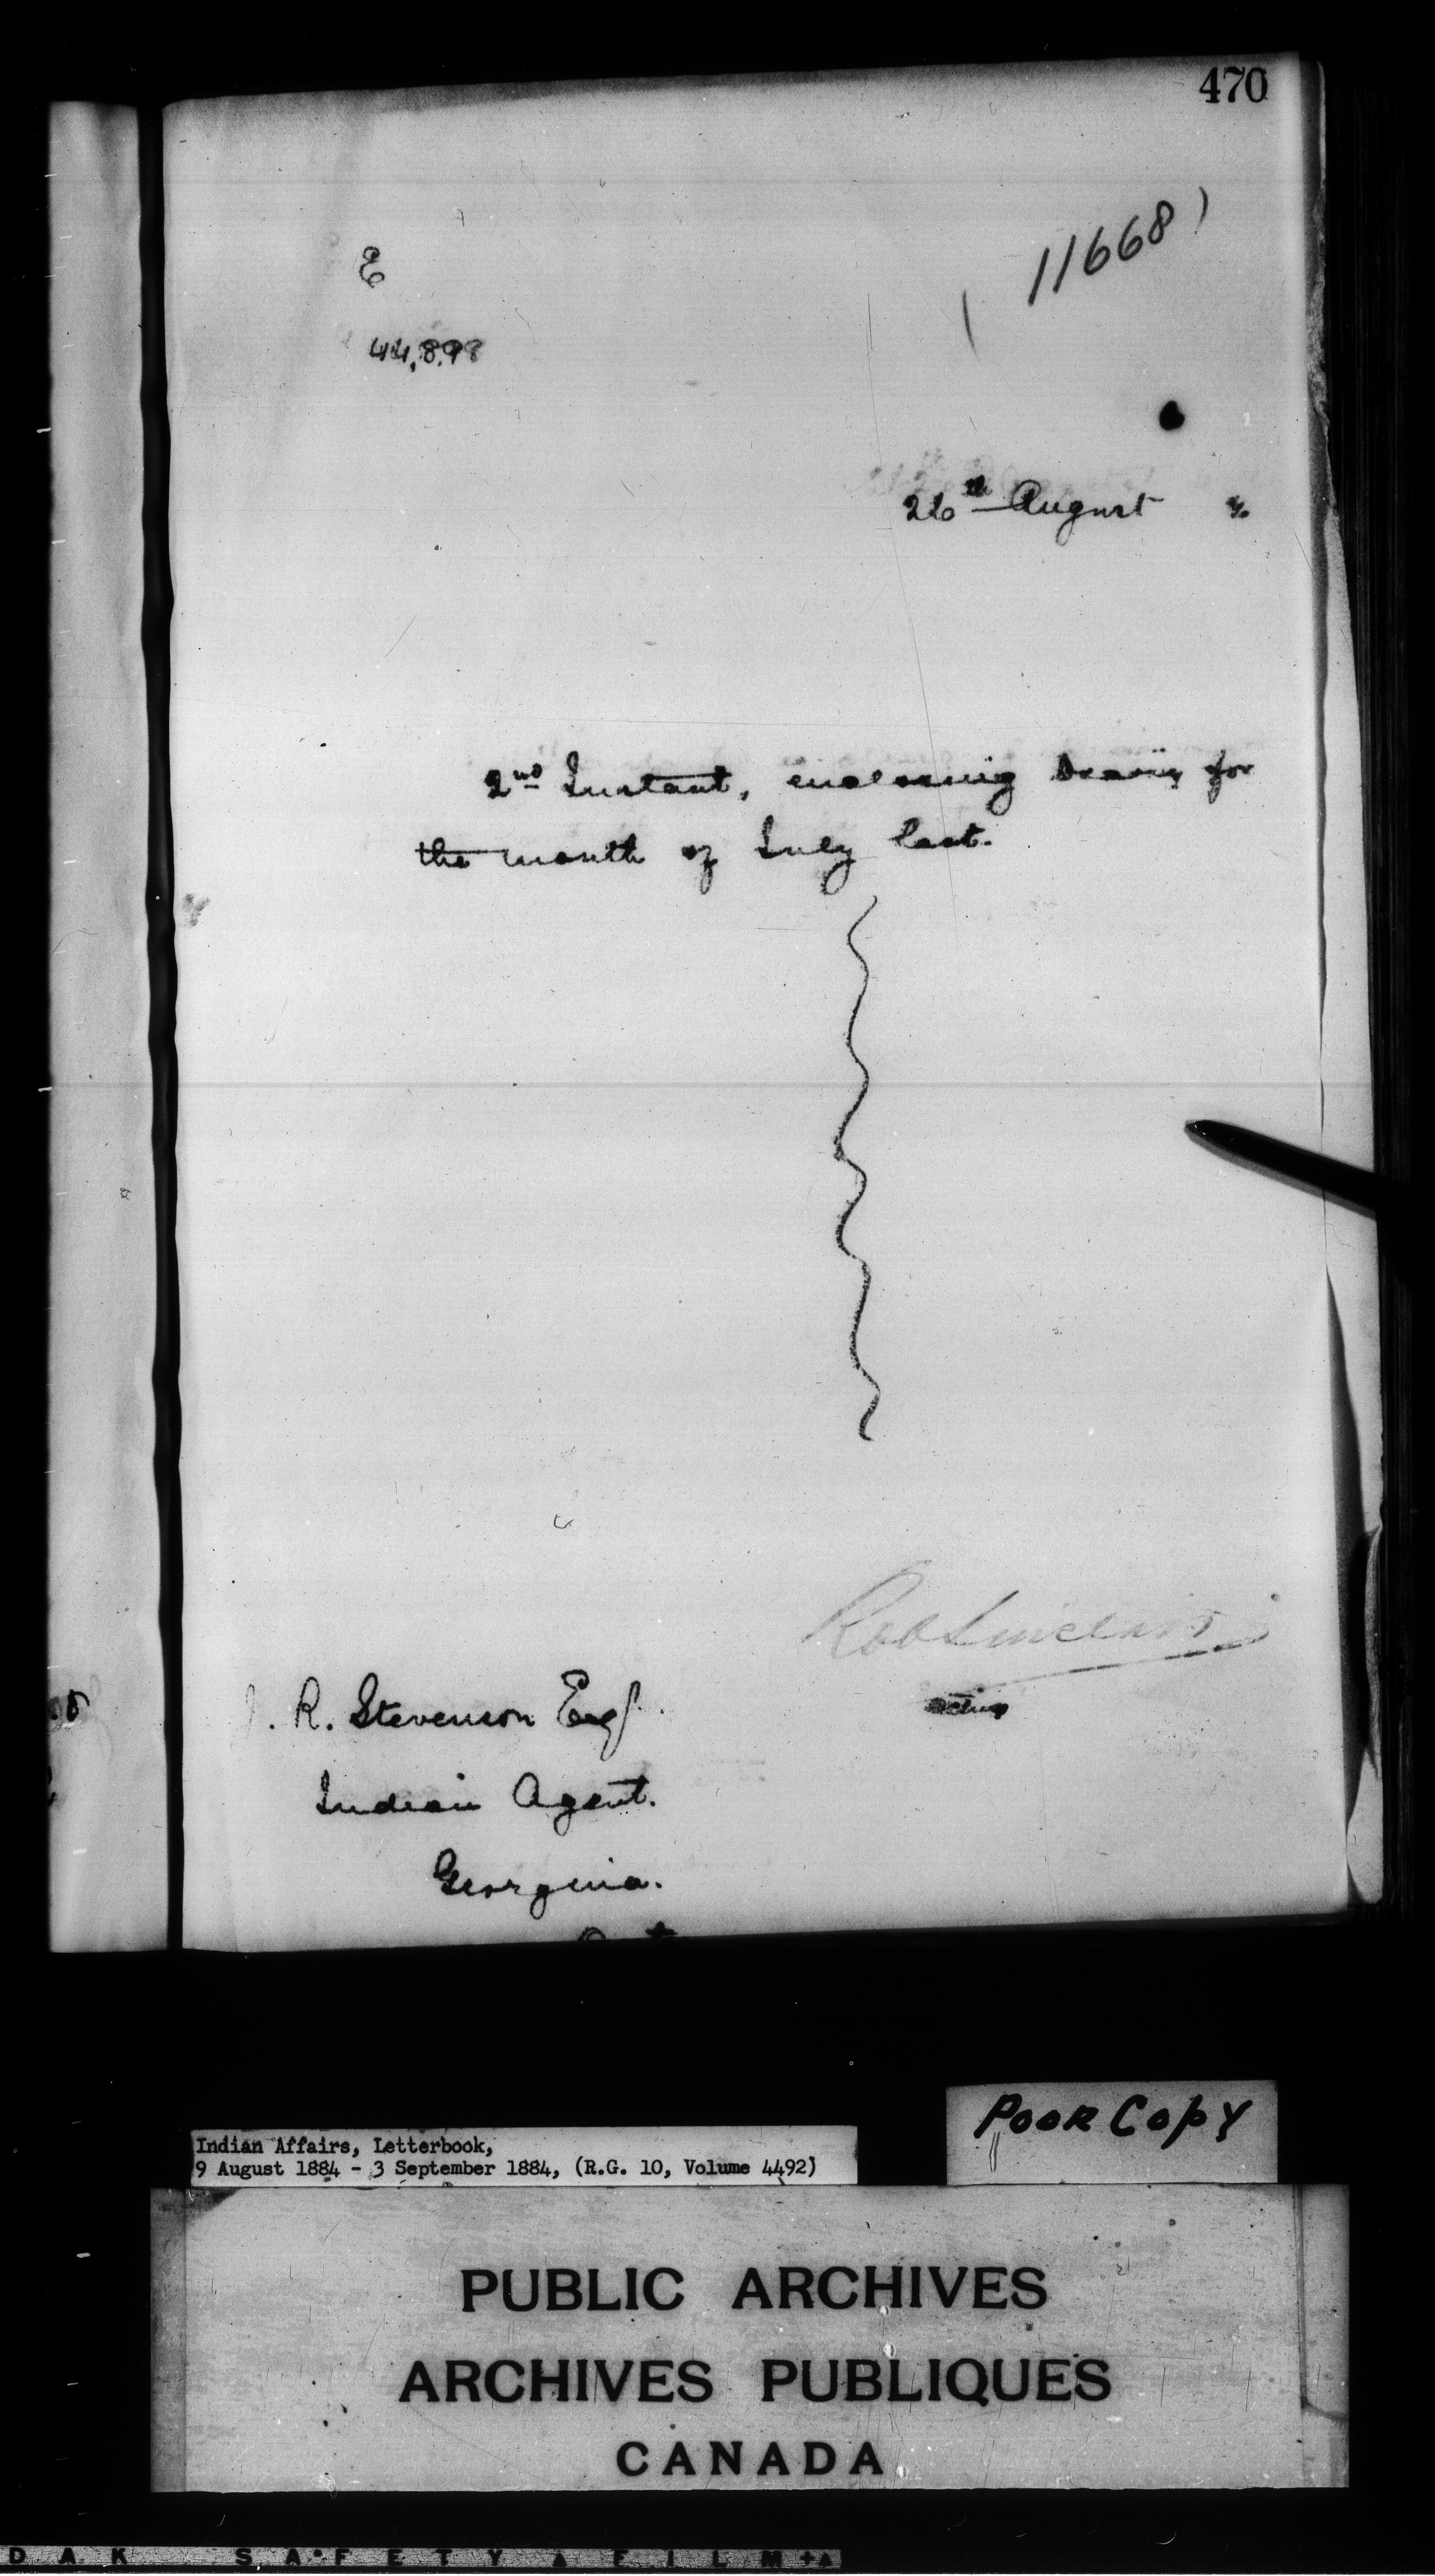 470
11668
E
44,898
26th August
2nd Instant, enclosing Diary for
the month of July last.
Rob Sinclair
acting
J. R. Stevenson Esq.
Indian Agent.
Georgina.
Poor Copy
Indian Affairs, Letterbook,
9 August 1884 - 3 September 1884, (R.G. 10, Volume 4492)
PUBLIC ARCHIVES
ARCHIVES PUBLIQUES
CANADA
DAK SAFETY FILM